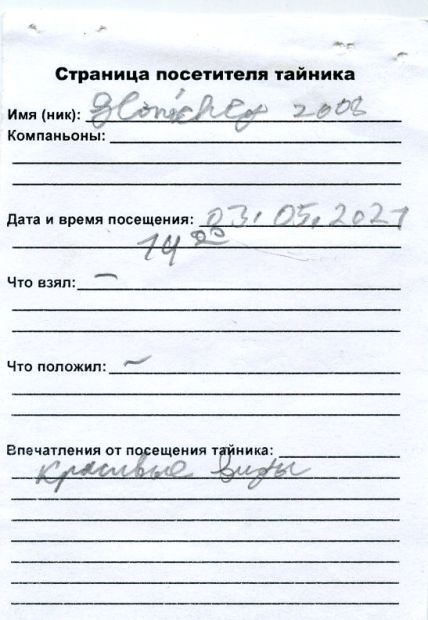 Страница посетителя тайника
Имя (ник): 2008
Компаньоны:
Дата и время посещения: 03.05.2021
14 00
Что взял: —
Что положил: ~
Впечатления от посещения тайника:
красивые виды